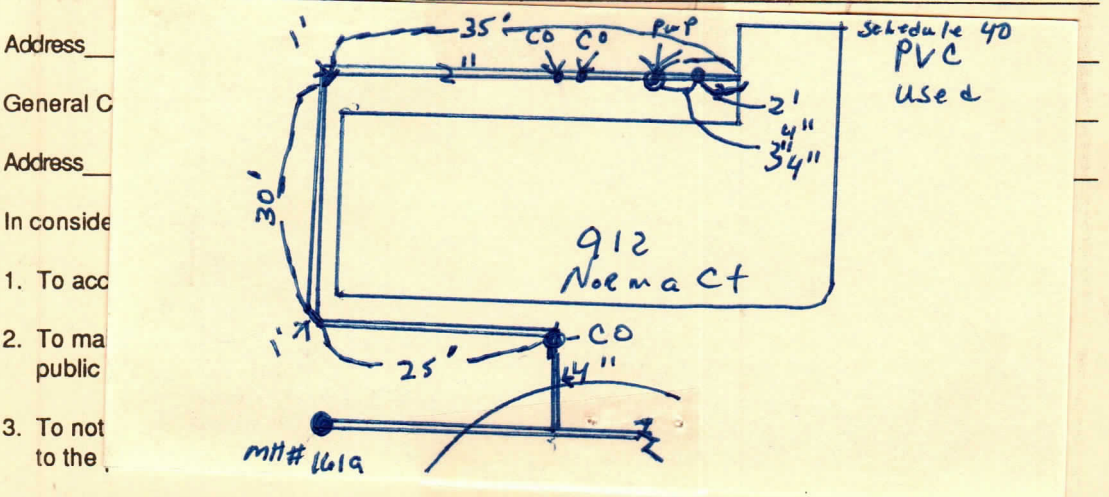 Address
General C
Address
In conside
1. To acc
2. To ma
public
3. To not
to the
1'
35'
CO CO
PuP
Schedule 40
PVC
Used
2"
2'
4"
3"4"
30'
912
Norma Ct
1'
25'
CO
4"
MH# 161a